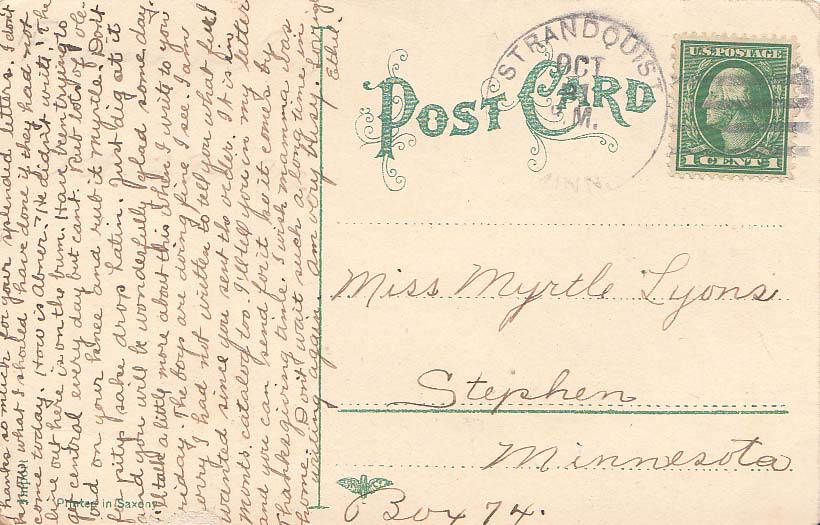 Thanks so much for your splended letters. I don't
know what I should have done if they had not
come today. How is Abner? He didn't write! The
line out here is on the bum. Have been trying to
get central every day but cant. Put lots of ole-
on your knee and rub it myrtle. Don't
for pity sake drop Latin. Just dig at it
and you will be wonderfully glad some day.
I'll talk a little more about this when I write to you
Friday. The boys are doing fine I see. I am
sorry I had not written to tell you what full
wanted since you sent the order. It is in
Mont's catalog too. I'll tell you in my letter
and you can send for it so it comes by
Thanksgiving time. I wish mamma was
home. Don't wait such a long time in
writing again. Am very busy. Loving
Ethel.
POST CARD
STRANDQUIST
OCT
21
M.
MINN.
U.S. POSTAGE
1 CENT 1
Miss Myrtle Lyons
Stephen
Minnesota
Box 74.
Printed in Saxony